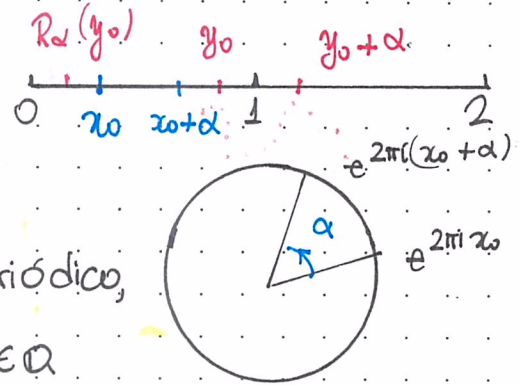 Rα(y₀) y₀ y₀+α
0 x₀ x₀+α 1 2
e^{2πi(x₀+α)}
α
e^{2πi x₀}
riódico,
∈ Q